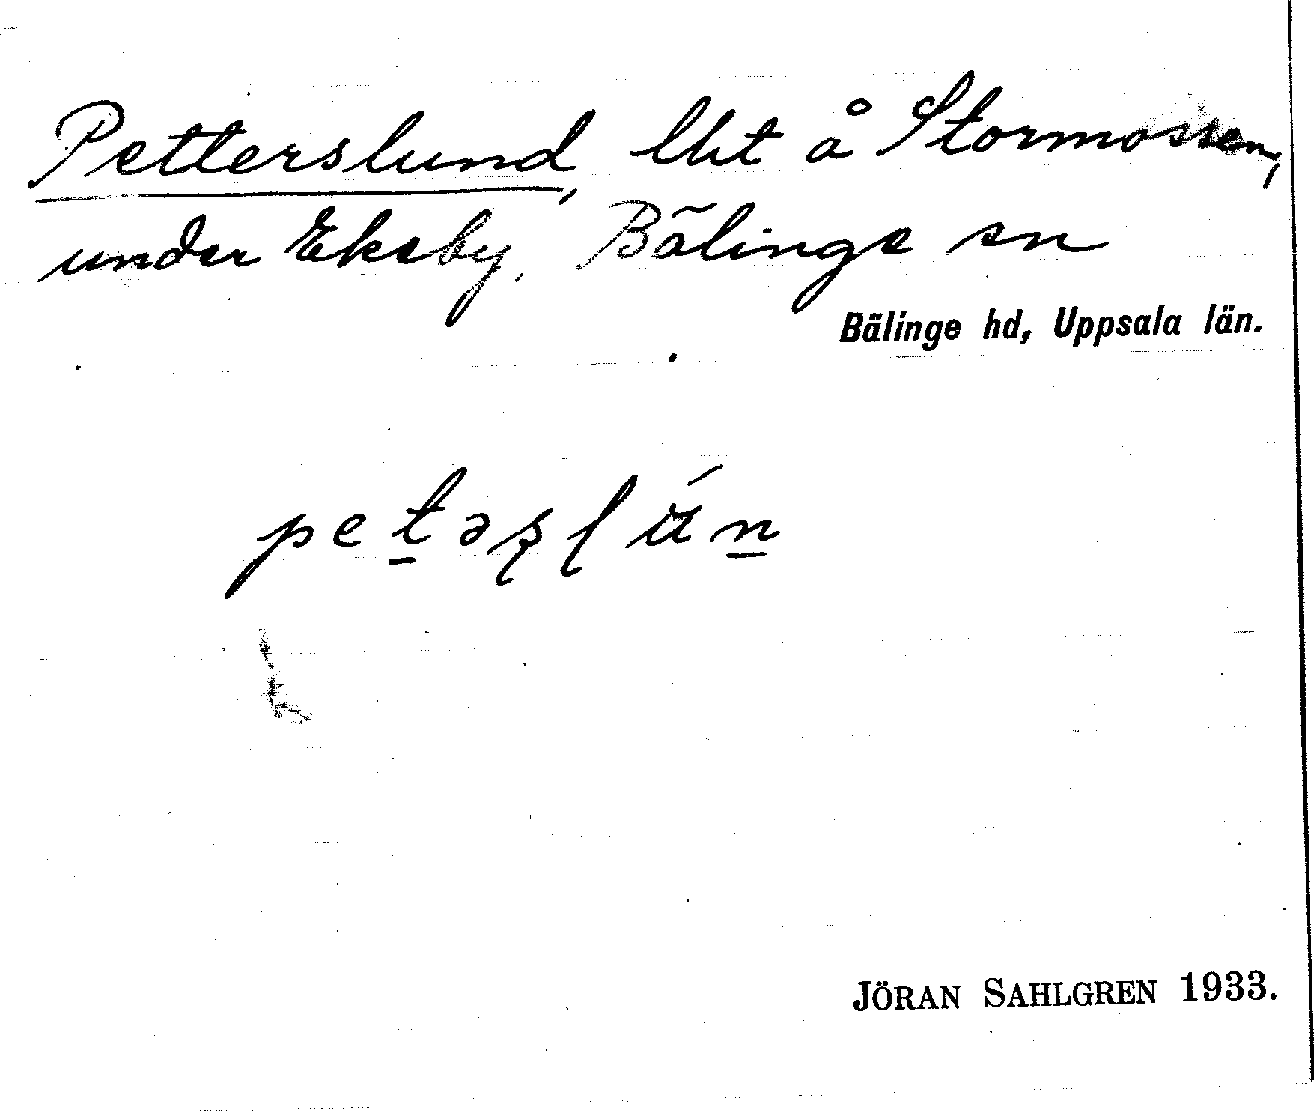 Petterslund, lht å Stormossen,
under Ekeby. Bälinge sn
Bälinge hd, Uppsala län.
JÖRAN SAHLGREN 1933.